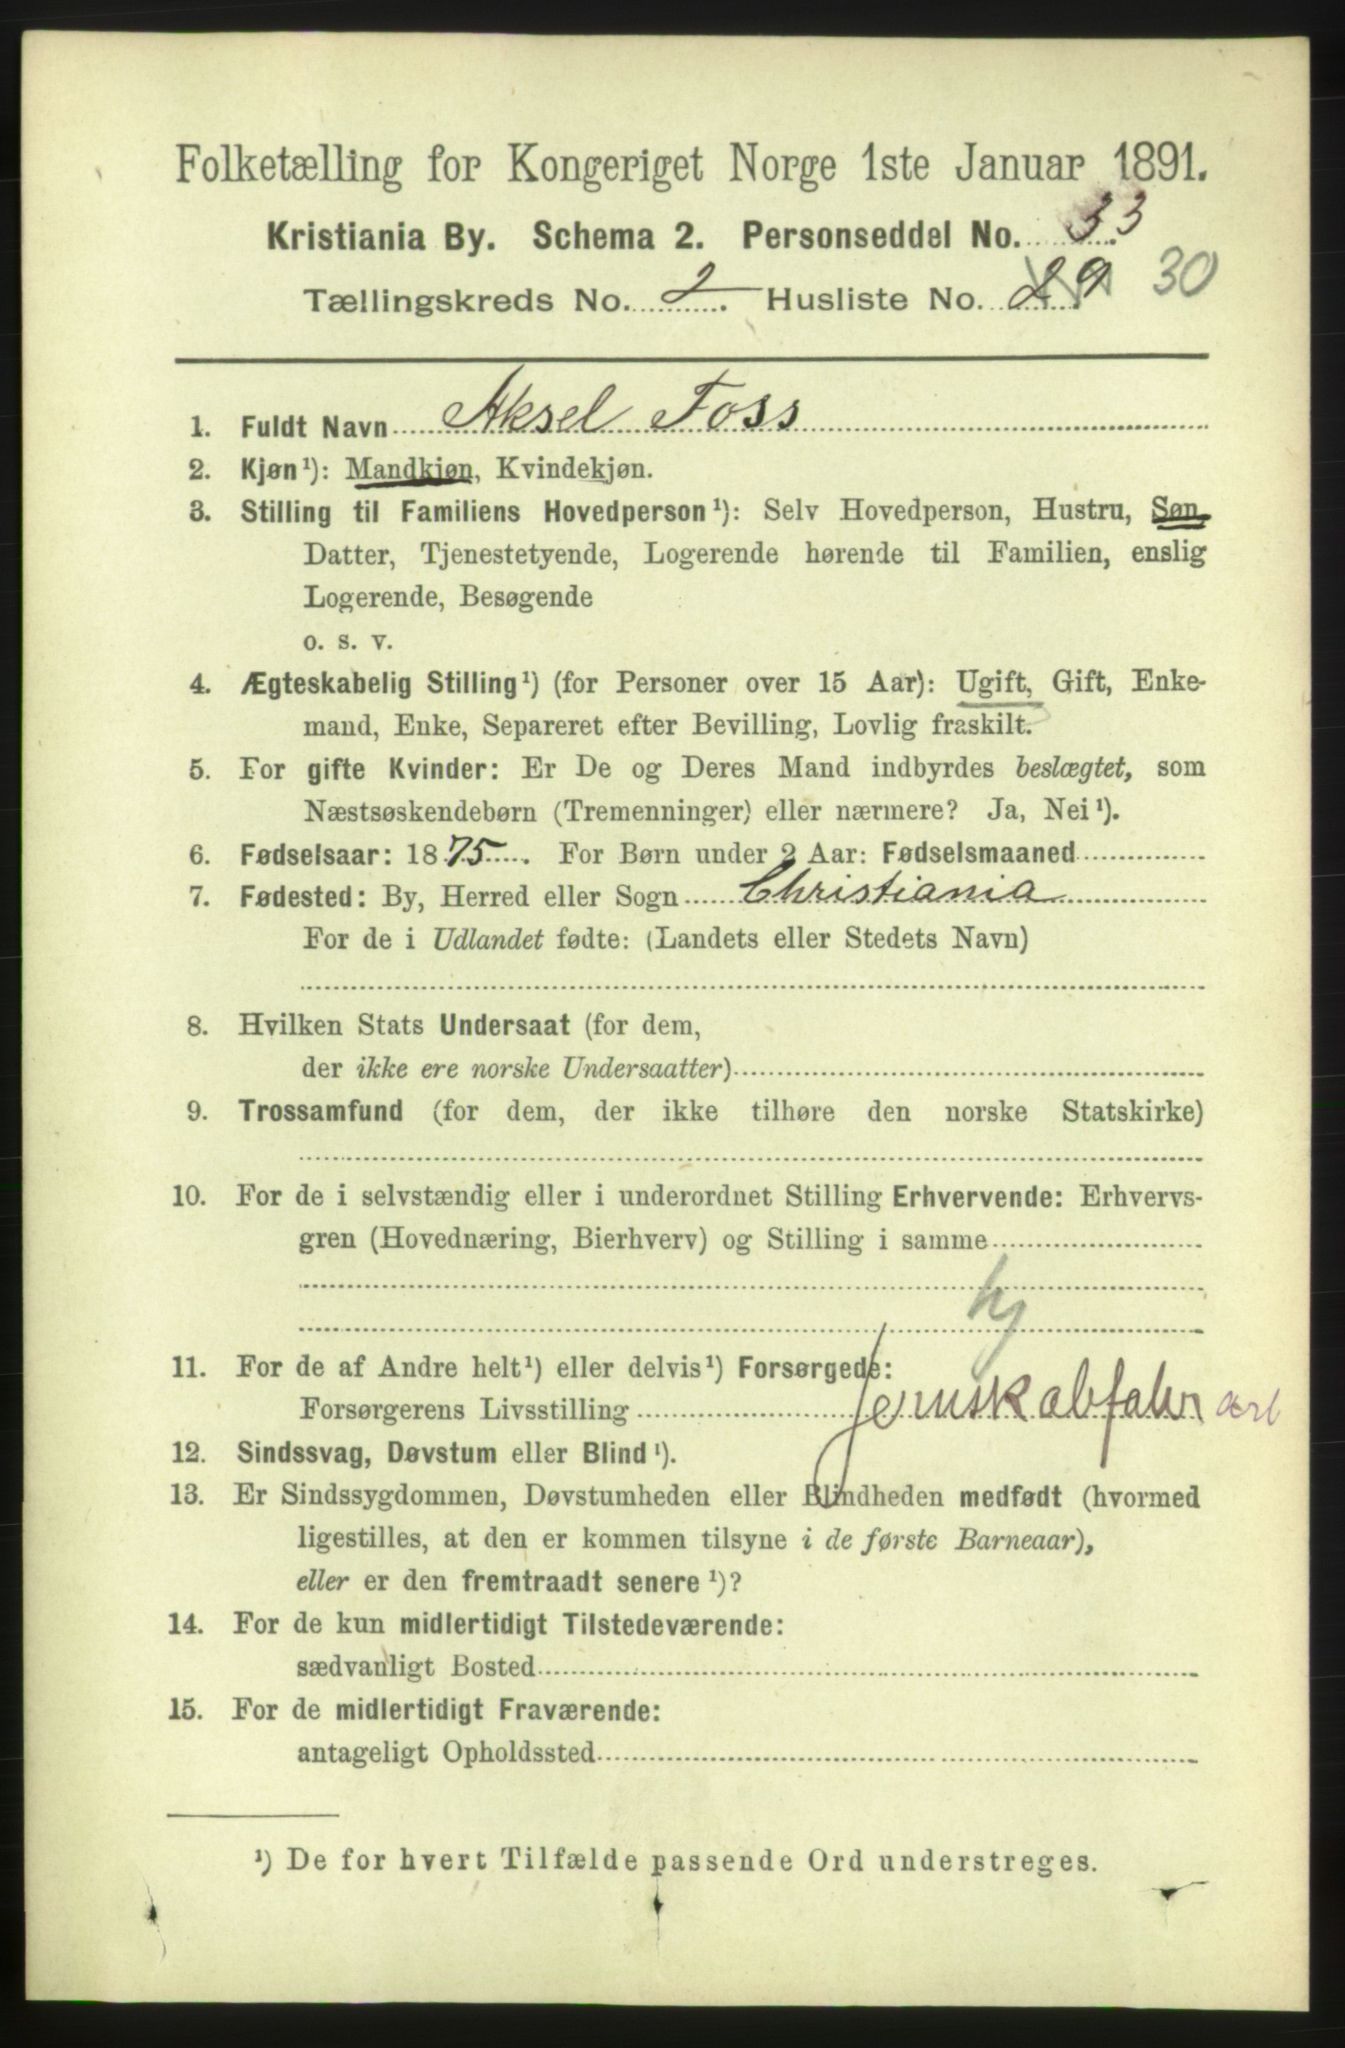 Folketælling for Kongeriget Norge 1ste Januar 1891.
Kristiania By. Schema 2. Personseddel No. 33
Tællingskreds No. 2. Husliste No. 29 30
1. Fuldt Navn Aksel Foss
2. Kjøn¹): Mandkjøn, Kvindekjøn.
3. Stilling til Familiens Hovedperson¹): Selv Hovedperson, Hustru, Søn,
Datter, Tjenestetyende, Logerende hørende til Familien, enslig
Logerende, Besøgende
o. s. v.
4. Ægteskabelig Stilling¹) (for Personer over 15 Aar): Ugift, Gift, Enke-
mand, Enke, Separeret efter Bevilling, Lovlig fraskilt.
5. For gifte Kvinder: Er De og Deres Mand indbyrdes beslægtet, som
Næstsøskendebørn (Tremenninger) eller nærmere? Ja, Nei¹).
6. Fødselsaar: 1875. For Børn under 2 Aar: Fødselsmaaned
7. Fødested: By, Herred eller Sogn Christiania
For de i Udlandet fødte: (Landets eller Stedets Navn)
8. Hvilken Stats Undersaat (for dem,
der ikke ere norske Undersaatter)
9. Trossamfund (for dem, der ikke tilhøre den norske Statskirke)
10. For de i selvstændig eller i underordnet Stilling Erhvervende: Erhvervs-
gren (Hovednæring, Bierhverv) og Stilling i samme
hj
11. For de af Andre helt¹) eller delvis¹) Forsørgede:
Forsørgerens Livsstilling Jernskabfabr arb
12. Sindssvag, Døvstum eller Blind¹).
13. Er Sindssygdommen, Døvstumheden eller Blindheden medfødt (hvormed
ligestilles, at den er kommen tilsyne i de første Barneaar),
eller er den fremtraadt senere¹)?
14. For de kun midlertidigt Tilstedeværende:
sædvanligt Bosted
15. For de midlertidigt Fraværende:
antageligt Opholdssted
¹) De for hvert Tilfælde passende Ord understreges.